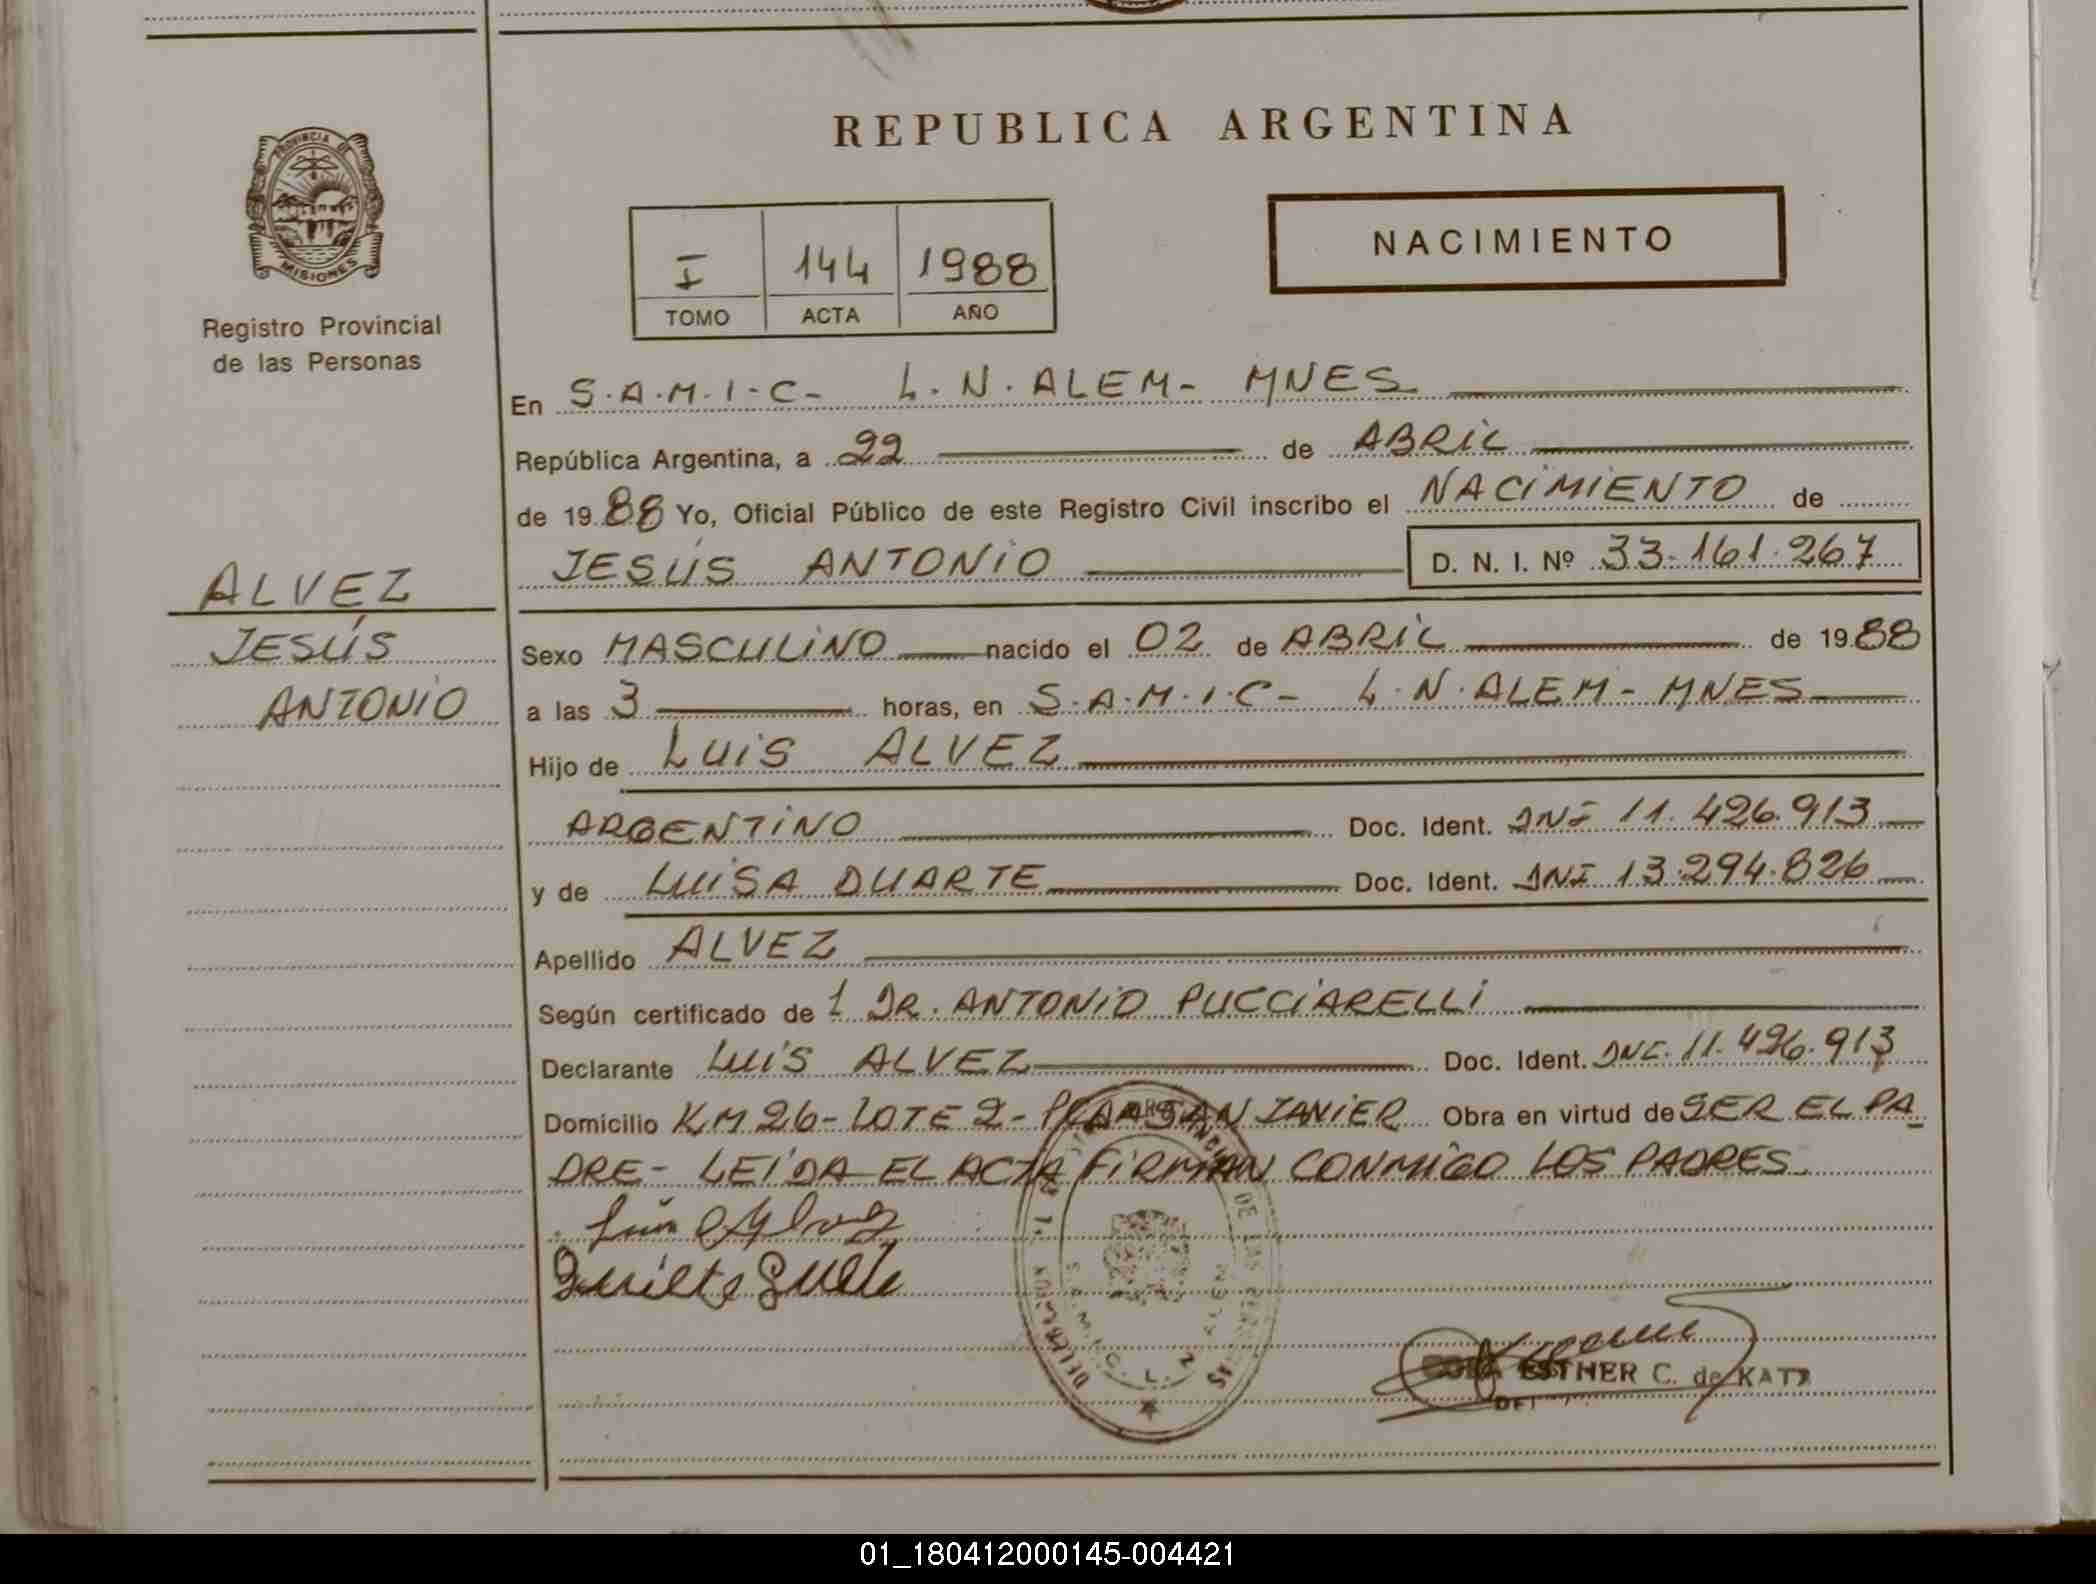 REPUBLICA ARGENTINA
PROVINCIA DE
MISIONES
Registro Provincial
de las Personas
I 144 1988
TOMO ACTA AÑO
NACIMIENTO
En S.A.M.I.C- L.N.ALEM- MNES
República Argentina, a 22 de ABRIL
de 1988 Yo, Oficial Público de este Registro Civil inscribo el NACIMIENTO de
JESÚS ANTONIO D. N. I. Nº 33.161.267
ALVEZ
JESÚS
ANTONIO
Sexo MASCULINO nacido el 02 de ABRIL de 1988
a las 3 horas, en S.A.M.I.C- L.N.ALEM- MNES
Hijo de LUIS ALVEZ
ARGENTINO Doc. Ident. DNI 11.426.913
y de LUISA DUARTE Doc. Ident. DNI 13.294.826
Apellido ALVEZ
Según certificado de l DR. ANTONIO PUCCIARELLI
Declarante LUIS ALVEZ Doc. Ident. DNI. 11.426.913
Domicilio KM 26- LOTE 2- SAN JAVIER Obra en virtud de SER EL PA
DRE- LEIDA EL ACTA FIRMAN CONMIGO LOS PADRES
ESTHER C. de KATZ
01_180412000145-004421